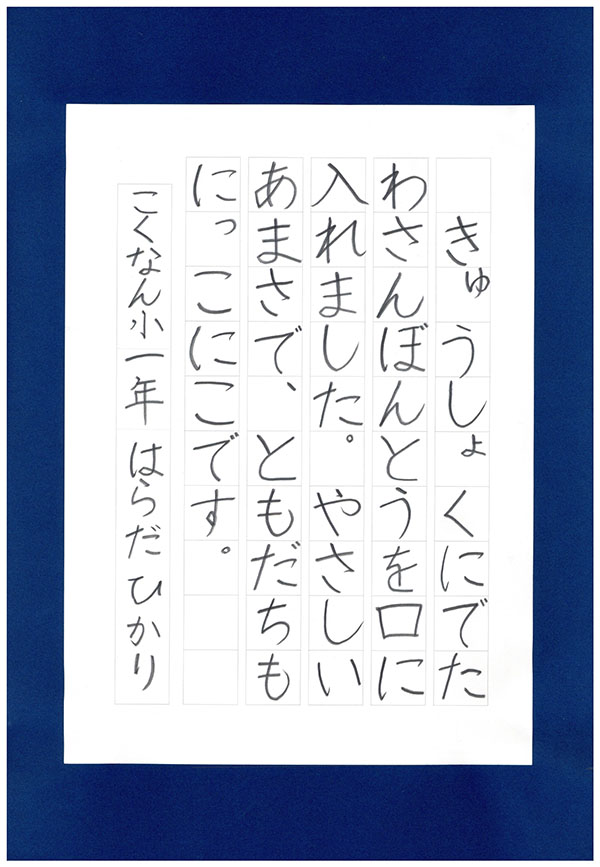 きゅうしょくにでた
わさんぼんとうを口に
入れました。やさしい
あまさで、ともだちも
にっこにこです。
こくなん小一年 はらだひかり